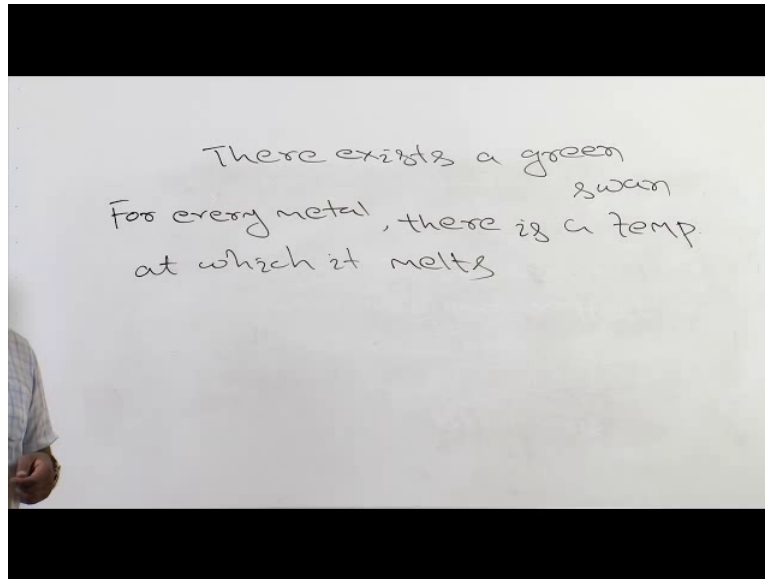 There exists a green
swan
For every metal, there is a temp.
at which it melts